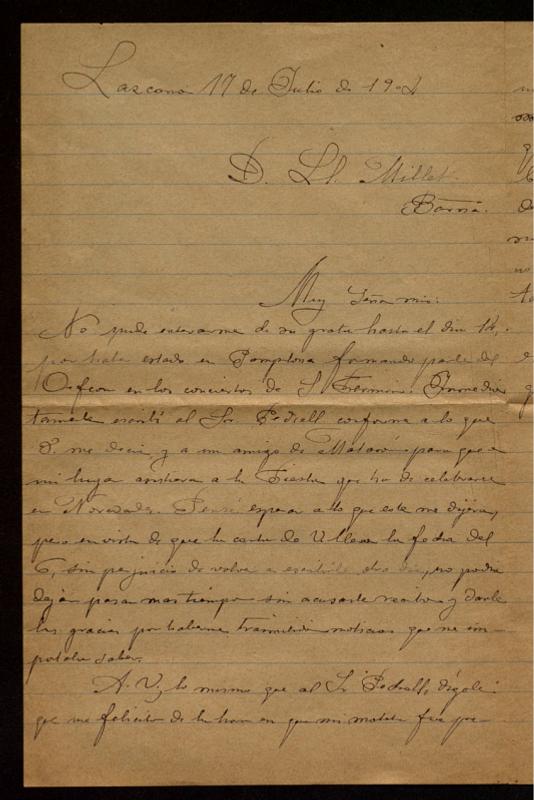 Lazcano 17 de Julio de 1902
D. Ll. Millet.
Barna.
Muy Señor mio:
No pude enterarme de su grata hasta el dia 14,
por haber estado en Pamplona formando parte del
Orfeon en los conciertos de S. Fermin. Inmedia
tamente escribí al Sr. Pedrell conforme a lo que
V. me decia, y a un amigo de Mataró para que en
mi lugar asistiera a la Fiesta que ha de celebrarse
en Novedades. Pensé esperar a lo que este me dijera,
pero en vista de que la carta de V. lleva la fecha del
6, sin perjuicio de volver a escribirle otro dia, no podia
dejar pasar mas tiempo sin acusarle recibo y darle
las gracias por haberme trasmitido noticias que me im
portaba saber.
A V., lo mismo que al Sr. Pedrell, digole
que me felicito de la hora en que mi motete fue pre